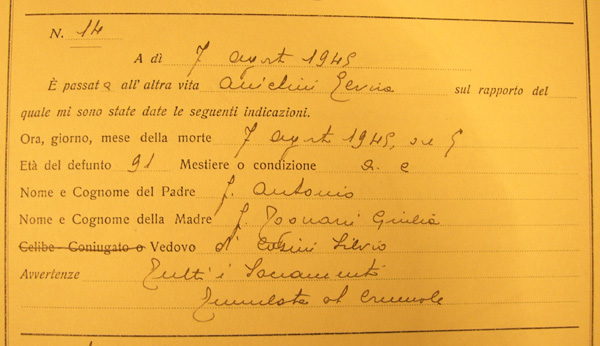 N. 14
A dì 7 agost 1945
È passata all'altra vita Anichini Ersi sul rapporto del
quale mi sono state date le seguenti indicazioni.
Ora, giorno, mese della morte 7 agost 1945, ore 5
Età del defunto 91 Mestiere o condizione a. c
Nome e Cognome del Padre f. Antonio
Nome e Cognome della Madre f. Giulia
Celibe - Coniugato o Vedovo di Silvio
Avvertenze Tutti i Sacramenti
Tumulata al